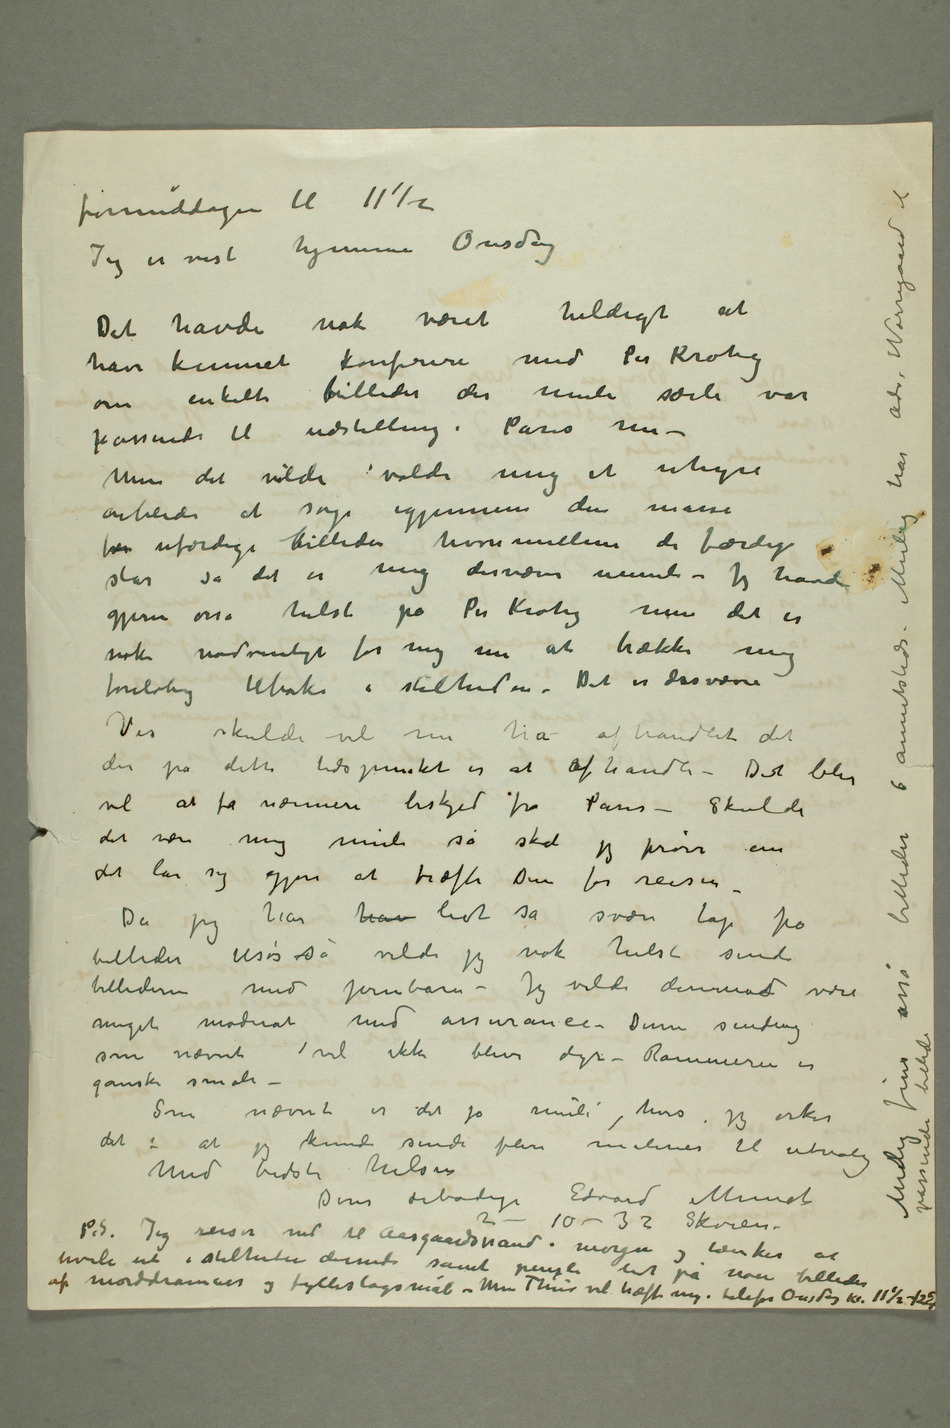 formiddagen til 11 1/2
Jeg er vist hjemme Onsdag
Det havde nok været heldigt at
have kunnet konferere med Per Krohg
om enkelte billeder der muli særli var
passende til udstilling i Paris nu –
Men det vilde volde mig et uhyre
arbeide at søge igjennem den masse
ufærdige billeder hvorimellem de færdige
står så det er mig desværre umuli – Jeg havde
gjerne osså hilst på Per Krohg men det er
nok nødvendigt for mig nu at trække mig
foreløbig tilbake i stilheden – Det er desværre
Vi skulde vel nu ha afhandlet det
der på dette tidspunkt er at afhandle – Det blir
vel at få nærmere beskjed fra Paris – Skulde
det være mig muli så skal jeg prøve om
det lar sig gjøre at træffe Dem før reisen –
Da jeg har havt lidt så svære tap på
billeder tilsøs så vilde jeg nok helst sende
billederne med jernbane – Jeg vilde derimod være
meget moderat med assurance – Denne sending
som nævnt vil ikke blive dyr – Rammerne er
ganske smale –
Som nævnt er det jo muli, hvis jeg orker
det: at jeg kunde sende flere malerier til utvalg
Med bedste hilsen
Deres ærbødige Edvard Munch
2 – 10 – 32 Skøien –
P.S. Jeg reiser ned til Aasgaardstrand i morgen og tænker at
hvile ut i stilheden dernede samt pensle lidt på noen billeder
af morddramaer og fylleslagsmål – Men Thiis vil træffe mig i telefon Onsdag Kl. 11 1/2 – 12
Mulig fins osså billeder annetsteds – Mulig har adv. Nørregaard et
passende billede